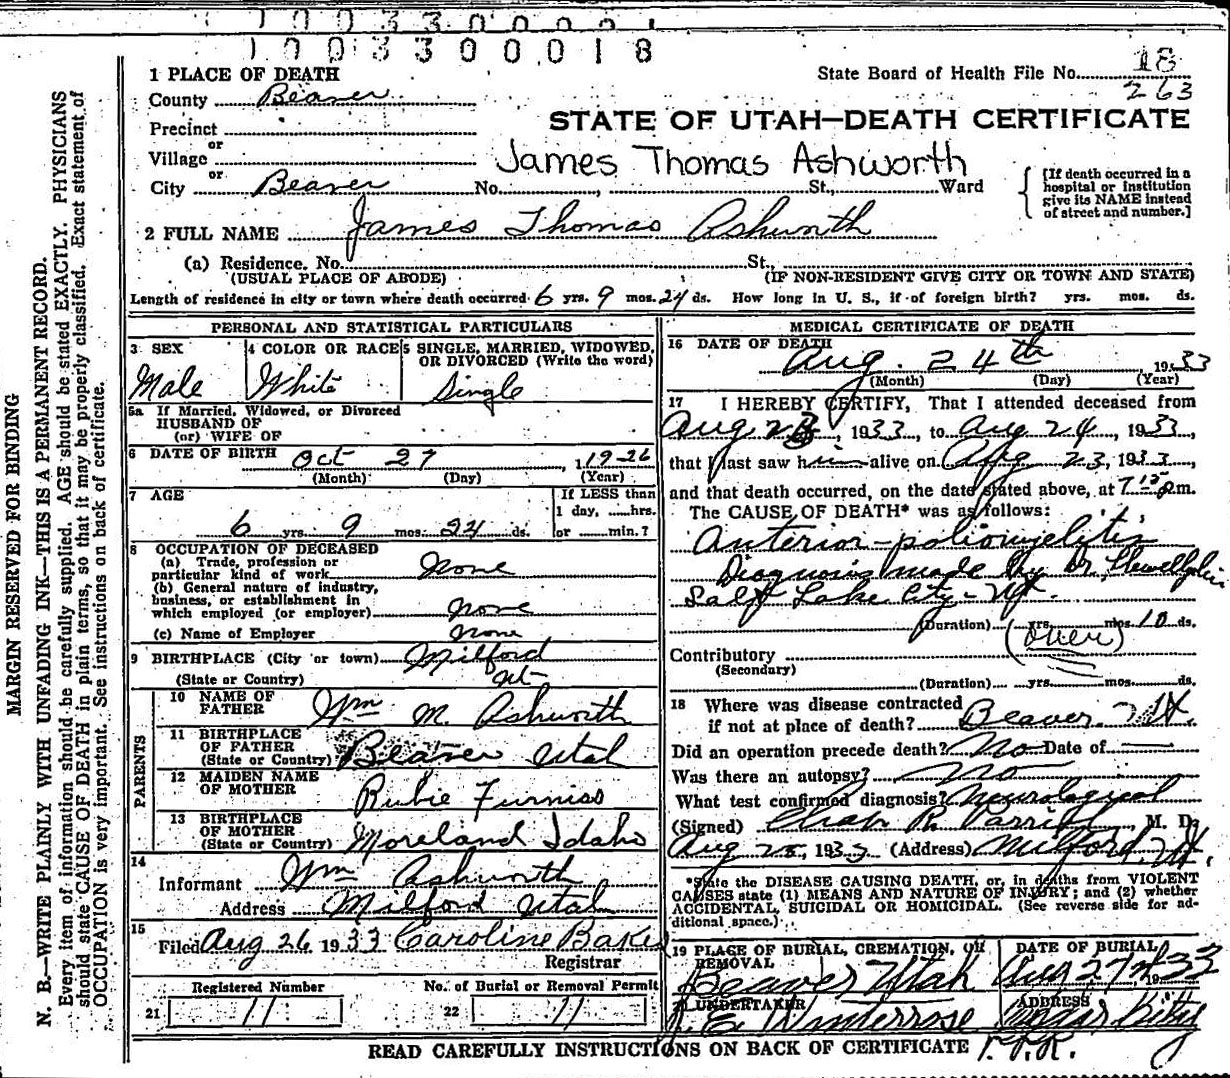 1 0 0 3 3 0 0 0 0 1 8
1 PLACE OF DEATH
State Board of Health File No. 18
263
County Beaver
STATE OF UTAH—DEATH CERTIFICATE
Precinct
or
Village
James Thomas Ashworth
or
City Beaver No. , St., Ward
[If death occurred in a hospital or institution give its NAME instead of street and number.]
2 FULL NAME James Thomas Ashworth
(a) Residence. No. St.,
(USUAL PLACE OF ABODE) (IF NON-RESIDENT GIVE CITY OR TOWN AND STATE)
Length of residence in city or town where death occurred 6 yrs. 9 mos. 24 ds. How long in U. S., if of foreign birth? yrs. mos. ds.
PERSONAL AND STATISTICAL PARTICULARS
3 SEX
Male
4 COLOR OR RACE
White
5 SINGLE, MARRIED, WIDOWED, OR DIVORCED (Write the word)
Single
5a If Married, Widowed, or Divorced
HUSBAND OF
(or) WIFE OF
6 DATE OF BIRTH Oct 27, 1926
(Month) (Day) (Year)
7 AGE
6 yrs. 9 mos. 24 ds.
If LESS than
1 day, hrs.
or min.?
8 OCCUPATION OF DECEASED
(a) Trade, profession or
particular kind of work None
(b) General nature of industry,
business, or establishment in
which employed (or employer) None
(c) Name of Employer None
9 BIRTHPLACE (City or town) Milford
(State or Country) Ut
PARENTS
10 NAME OF FATHER Wm M. Ashworth
11 BIRTHPLACE OF FATHER
(State or Country) Beaver Utah
12 MAIDEN NAME OF MOTHER Rubie Furniss
13 BIRTHPLACE OF MOTHER
(State or Country) Moreland Idaho
14 Informant Wm Ashworth
Address Milford Utah
15 Filed Aug 26 1933 Caroline Baker
Registrar
Registered Number
21 11
No. of Burial or Removal Permit
22 11
MEDICAL CERTIFICATE OF DEATH
16 DATE OF DEATH
Aug. 24th 1933
(Month) (Day) (Year)
17 I HEREBY CERTIFY, That I attended deceased from
Aug 23, 1933, to Aug 24, 1933,
that I last saw him alive on Aug 23, 1933,
and that death occurred, on the date stated above, at 7 15 p.m.
The CAUSE OF DEATH* was as follows:
Anterior-poliomyelitis
Diagnosis made by Dr.
Salt Lake City - Ut.
(Duration) yrs. mos. 10 ds.
(over)
Contributory
(Secondary)
(Duration) yrs. mos. ds.
18 Where was disease contracted
if not at place of death? Beaver. Ut.
Did an operation precede death? No Date of
Was there an autopsy? No
What test confirmed diagnosis? Neurological
(Signed) R. M. D.
Aug 25, 1933 (Address) Milford. Ut.
*State the DISEASE CAUSING DEATH, or, in deaths from VIOLENT
CAUSES state (1) MEANS AND NATURE OF INJURY; and (2) whether
ACCIDENTAL, SUICIDAL OR HOMICIDAL. (See reverse side for ad-
ditional space.)
19 PLACE OF BURIAL, CREMATION, OR REMOVAL
Beaver Utah
DATE OF BURIAL
Aug 27 1933
UNDERTAKER
Winterrose
ADDRESS
Cedar City
READ CAREFULLY INSTRUCTIONS ON BACK OF CERTIFICATE
MARGIN RESERVED FOR BINDING
N. B.—WRITE PLAINLY WITH UNFADING INK—THIS IS A PERMANENT RECORD.
Every item of information should be carefully supplied. AGE should be stated EXACTLY. PHYSICIANS
should state CAUSE OF DEATH in plain terms, so that it may be properly classified. Exact statement of
OCCUPATION is very important. See instructions on back of certificate.